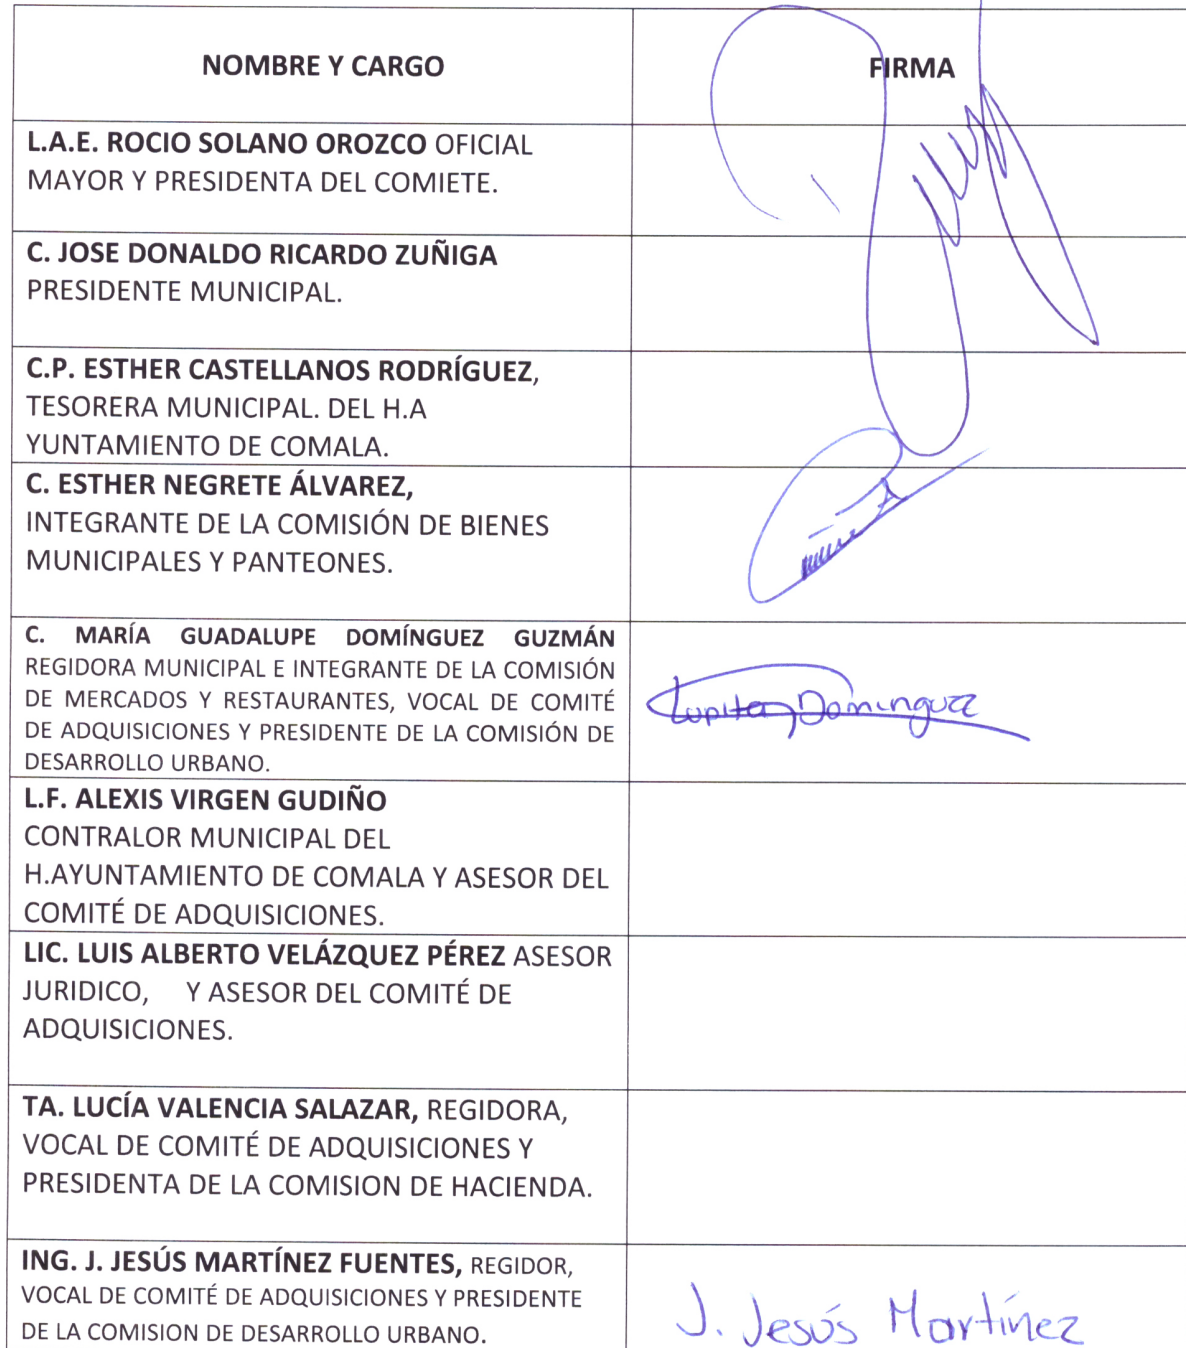 NOMBRE Y CARGO
FIRMA
L.A.E. ROCIO SOLANO OROZCO OFICIAL
MAYOR Y PRESIDENTA DEL COMIETE.
C. JOSE DONALDO RICARDO ZUÑIGA
PRESIDENTE MUNICIPAL.
C.P. ESTHER CASTELLANOS RODRÍGUEZ,
TESORERA MUNICIPAL. DEL H.A
YUNTAMIENTO DE COMALA.
C. ESTHER NEGRETE ÁLVAREZ,
INTEGRANTE DE LA COMISIÓN DE BIENES
MUNICIPALES Y PANTEONES.
C. MARÍA GUADALUPE DOMÍNGUEZ GUZMÁN
REGIDORA MUNICIPAL E INTEGRANTE DE LA COMISIÓN
DE MERCADOS Y RESTAURANTES, VOCAL DE COMITÉ
DE ADQUISICIONES Y PRESIDENTE DE LA COMISIÓN DE
DESARROLLO URBANO.
Lupita Dominguez
L.F. ALEXIS VIRGEN GUDIÑO
CONTRALOR MUNICIPAL DEL
H.AYUNTAMIENTO DE COMALA Y ASESOR DEL
COMITÉ DE ADQUISICIONES.
LIC. LUIS ALBERTO VELÁZQUEZ PÉREZ ASESOR
JURIDICO, Y ASESOR DEL COMITÉ DE
ADQUISICIONES.
TA. LUCÍA VALENCIA SALAZAR, REGIDORA,
VOCAL DE COMITÉ DE ADQUISICIONES Y
PRESIDENTA DE LA COMISION DE HACIENDA.
ING. J. JESÚS MARTÍNEZ FUENTES, REGIDOR,
VOCAL DE COMITÉ DE ADQUISICIONES Y PRESIDENTE
DE LA COMISION DE DESARROLLO URBANO.
J. Jesús Martínez